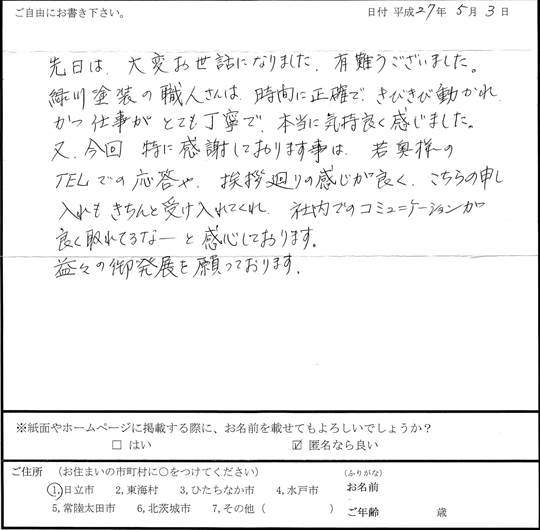 ご自由にお書き下さい。 日付 平成27年 5月 3日
先日は、大変お世話になりました。有難うございました。
緑川塗装の職人さんは、時間に正確で、きびきび動かれ
かつ仕事がとても丁寧で、本当に気持良く感じました。
又、今回 特に感謝しております事は、若奥様の
TELでの応答や、挨拶廻りの感じが良く、こちらの申し
入れもきちんと受け入れてくれ、社内でのコミュニケーションが
良く取れてるなーと感心しております。
益々の御発展を願っております。
※紙面やホームページに掲載する際に、お名前を載せてもよろしいでしょうか？
□ はい ☑ 匿名なら良い
ご住所 （お住まいの市町村に○をつけてください） （ふりがな）
1,日立市 2,東海村 3,ひたちなか市 4,水戸市 お名前
5,常陸太田市 6,北茨城市 7,その他（ ） ご年齢 歳